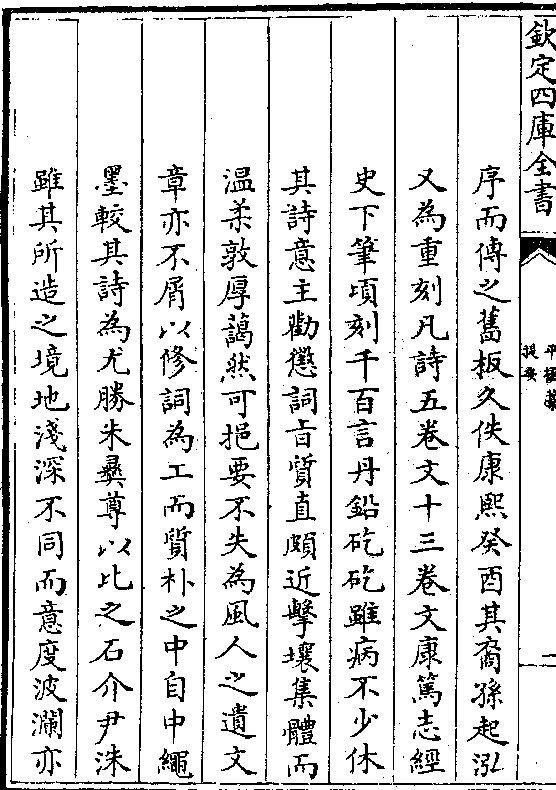 欽定四庫全書
平橋藁
提要
一
序而傳之舊板久佚康熙癸酉其裔孫起泓
又為重刻凡詩五卷文十三卷文康篤志經
史下筆頃刻千百言丹鉛矻矻雖病不少休
其詩意主勸懲詞旨質直頗近擊壤集體而
温柔敦厚藹然可挹要不失為風人之遺文
章亦不屑以修詞為工而質朴之中自中繩
墨較其詩為尤勝朱彝尊以比之石介尹洙
雖其所造之境地淺深不同而意度波瀾亦